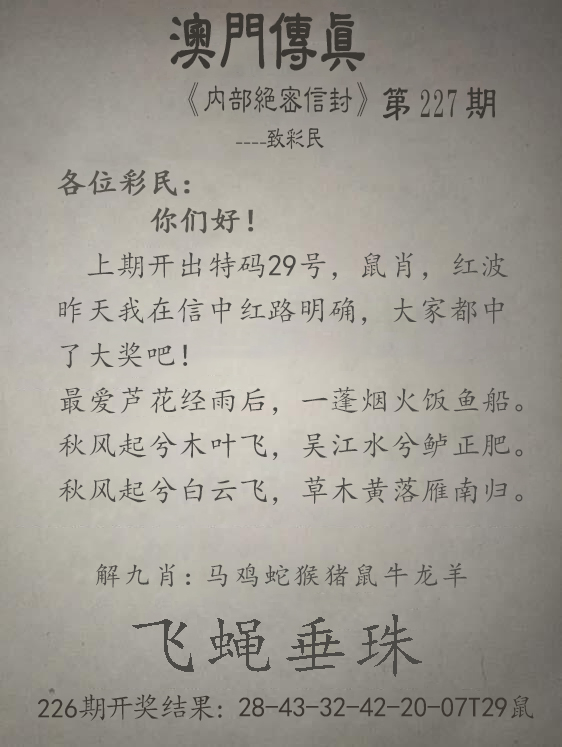 澳門傳眞
《内部絕密信封》第227期
----致彩民
各位彩民：
你们好！
上期开出特码29号，鼠肖，红波
昨天我在信中红路明确，大家都中
了大奖吧！
最爱芦花经雨后，一蓬烟火饭鱼船。
秋风起兮木叶飞，吴江水兮鲈正肥。
秋风起兮白云飞，草木黄落雁南归。
解九肖：马鸡蛇猴猪鼠牛龙羊
飞蝇垂珠
226期开奖结果：28-43-32-42-20-07T29鼠